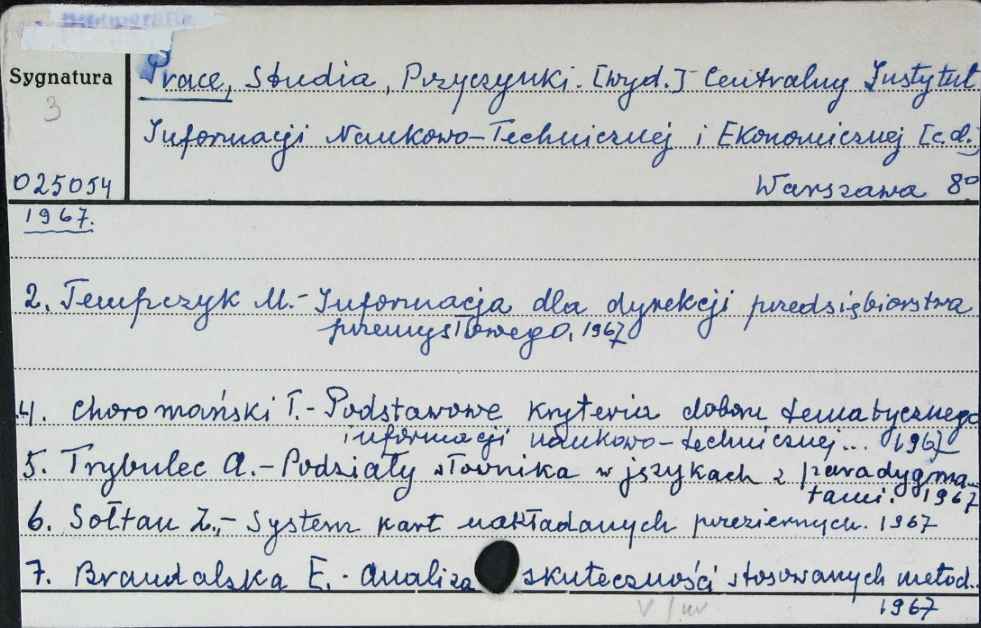 Sygnatura
3
025054
Prace, Studia, Przyczynki. [wyd.] Centralny Instytut
Informacji Naukowo-Technicznej i Ekonomicznej [c.d.]
Warszawa 8°
1967.
2. Tempczyk M.- Informacja dla dyrekcji przedsiębiorstwa
przemysłowego. 1967
4. Choromański T.- Podstawowe kryteria doboru tematycznego
informacji naukowo-technicznej... 1967
5. Trybulec A.- Podziały słownika w językach z paradygma-
tami. 1967
6. Sołtan Z.,- System kart nakładanych przeziernych. 1967
7. Brandalska E.- Analiza skuteczności stosowanych metod..
1967